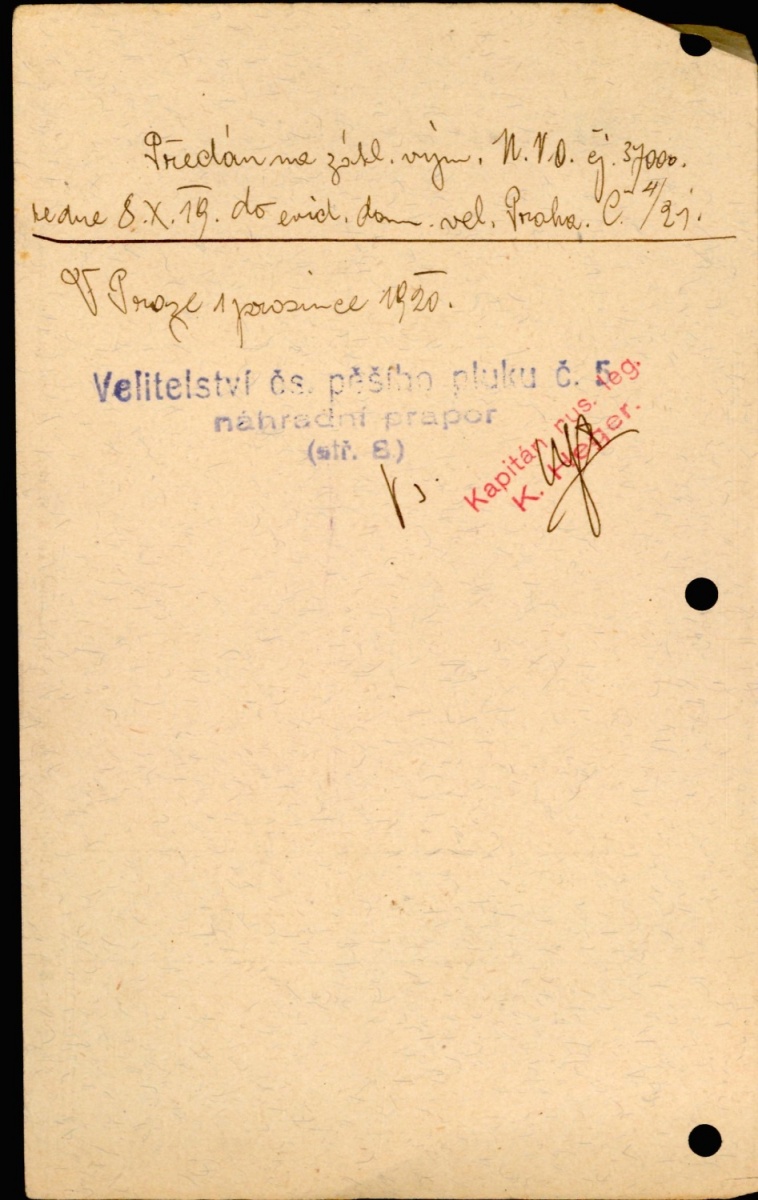 Předán na zákl. výn. N.V.O. čj. 37000.
ze dne 8.X.19. do evid. dom. vel. Praha. Č. 4/21.
V Praze 1 prosince 1920.
Velitelství čs. pěšího pluku č. 5
náhradní prapor
(stř. 8.)
Kapitán rus. leg.
K.